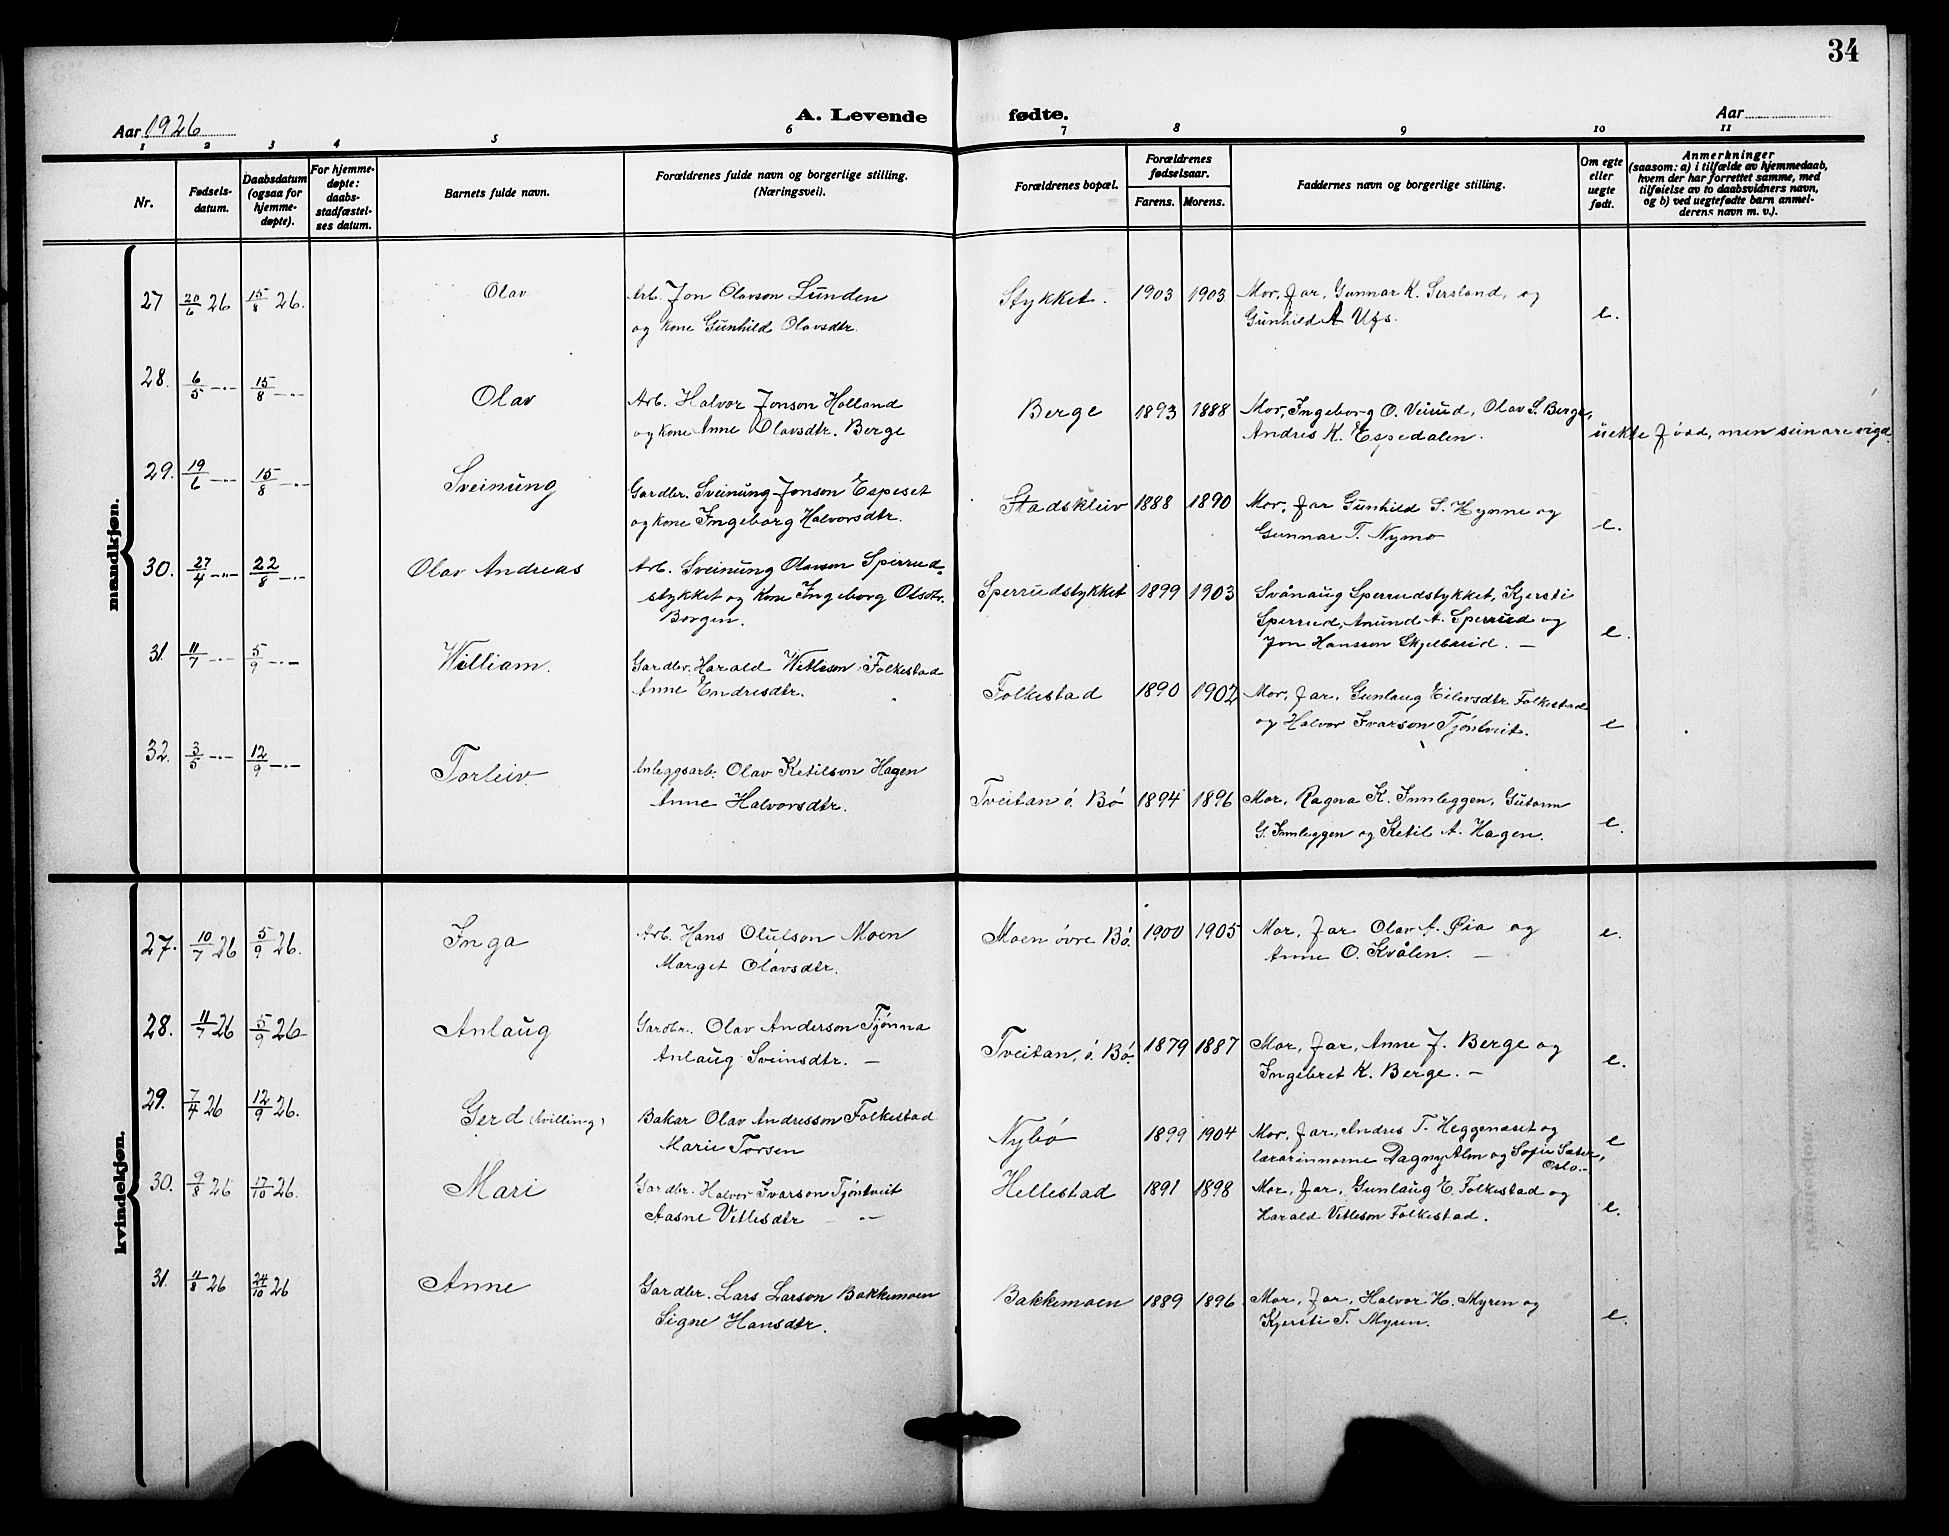 34
Aar 1926
A. Levende fødte.
Aar
1 2 3 4 5 6 7 8 9 10 11
Nr.
Fødsels-
datum.
Daabsdatum
(ogsaa for
hjemme-
døpte).
For hjemme-
døpte:
daabs-
stadfæstel-
ses datum.
Barnets fulde navn.
Forældrenes fulde navn og borgerlige stilling.
(Næringsvei).
Forældrenes bopæl.
Forældrenes
fødselsaar.
Farens. Morens.
Faddernes navn og borgerlige stilling.
Om egte
eller
uegte
født.
Anmerkninger
(saasom: a) i tilfælde av hjemmedaab,
hvem der har forrettet samme, med
tilføielse av to daabsvidners navn,
og b) ved uegtefødte barn anmel-
derens navn m. v.).
mandkjøn.
27 20/6 26 15/8 26. Olav Arb. Jon Olavson Lunden Stykket. 1903 1903 Mor, far, Gunnar K. Sersland, og
og kone Gunhild Olavsdtr. Gunhild A Ufs. e.
28. 6/5 -.- 15/8 -.- Olav Arb. Halvor Jonson Holland Berge 1893 1888 Mor, Ingeborg O. Veirud, Olav S. Berge,
og kone Anne Olavsdtr. Berge Andres K. Espedalen. uekte fødd, men seinare vigd
29. 19/6 -.- 15/8 -.- Sveinung Gardbr. Sveinung Jonson Espeset Stadskleiv 1888 1890 Mor, far Gunhild S. Hynne og
og kone Ingeborg Halvorsdtr. Gunnar T. Nymo e.
30. 27/4 -.- 22/8 -.- Olav Andreas Arb. Sveinung Olavson Sperrud- Sperrudstykket 1899 1903 Svånaug Sperrudstykket, Kjersti
stykket og kone Ingeborg Olsdtr. Sperrud, Anund A. Sperrud og
Borgen. Jon Hansson Skjelbreid. — e.
31. 11/7 -.- 5/9 -.- William. Gardbr. Harald Vetleson Folkestad Folkestad 1890 1902 Mor, far, Gunlaug Eilevsdtr. Folkestad
Anne Endresdtr. og Halvor Ivarson Tjöntveit. e
32. 3/5 -.- 12/9 -.- Torleiv. Anleggsarb. Olav Ketilson Hagen Tveitan ö. Bö 1894 1896 Mor, Ragna K. Innleggen, Gutorm
Anne Halvorsdtr. G. Innleggen og Ketil A. Hagen. e.
kvindekjøn.
27. 10/7 26 5/9 26. Inga Arb. Hans Olulson Moen Moen övre Bö. 1900 1905 Mor, far Olav A. Øia og e.
Marget Olavsdtr. Anne O. Kvålen. —
28. 11/7 26 5/9 26 Anlaug Gardbr. Olav Anderson Tjönna Tveitan, ö. Bö. 1879 1887 Mor, far, Anne J. Berge og
Anlaug Sveinsdtr. — Ingebret K. Berge. — e.
29. 7/4 26 12/9 26. Gerd (tvilling) Bakar Olav Andresson Folkestad Nybö 1899 1904 Mor, far, Andres T. Heggenæset og e
Marie Torsen lærarinnorne Dagny Alm og Sofie Sater,
Oslo.-
30. 9/8 26 17/10 26. Mari Gardbr. Halvor Ivarson Tjöntveit Hellestad 1891 1898 Mor, far, Gunlaug E. Folkestad og
Aasne Vetlesdtr -.- Harald Vetleson Folkestad. e.
31. 11/8 26 24/10 26 Anne Gardbr. Lars Larson Bakkemoen Bakkemoen 1889 1896 Mor, far, Halvor H. Myren og
Signe Hansdtr. Kjersti T. Myren. e.